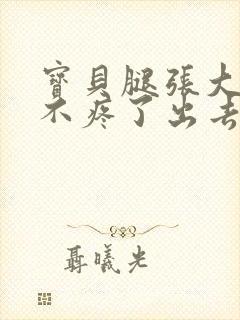 寶貝腿張大
不疼了出去
聶曦光